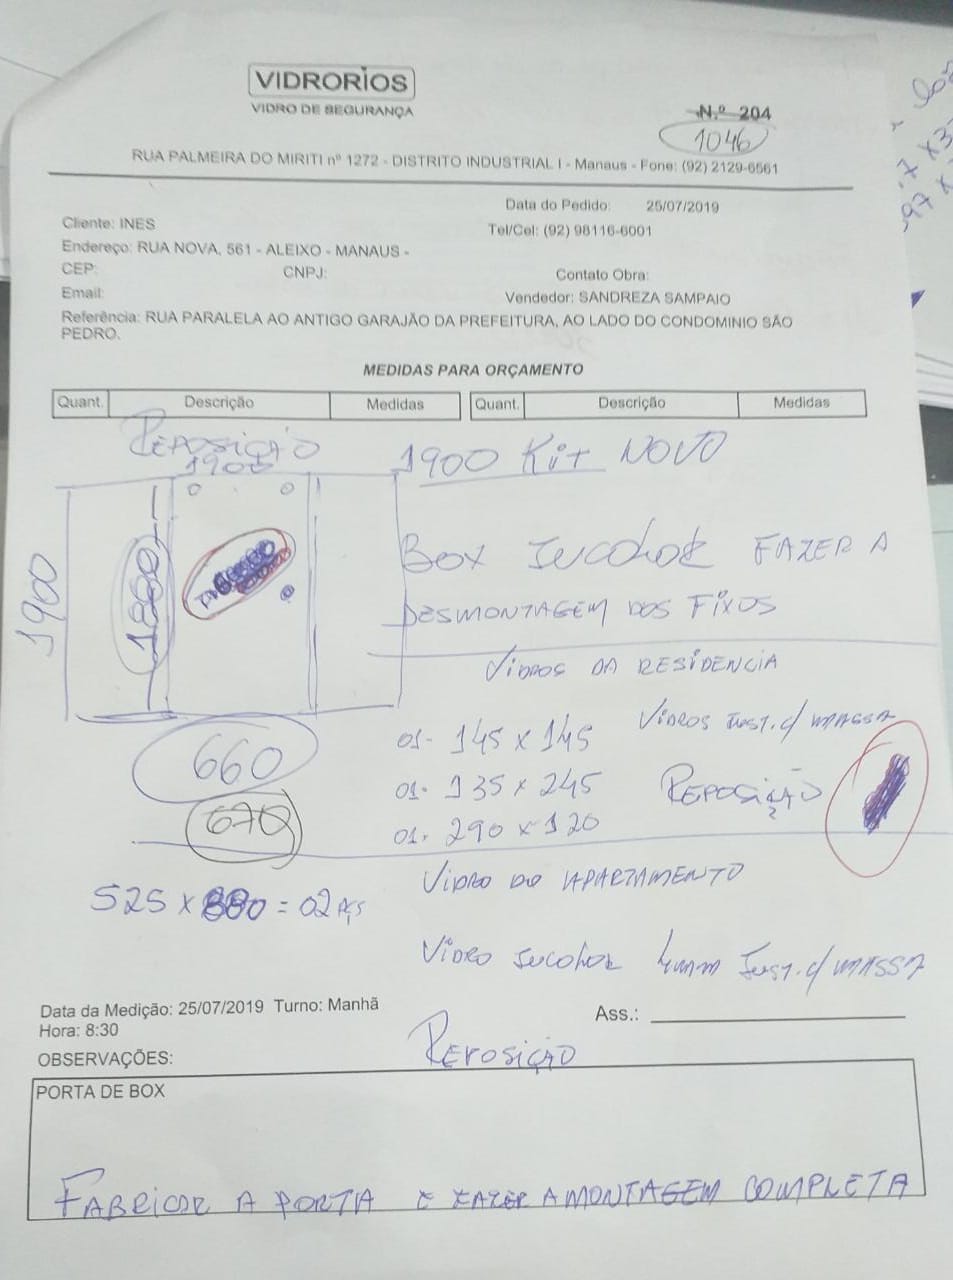 VIDRORIOS
VIDRO DE SEGURANÇA
N.º 204
1046
RUA PALMEIRA DO MIRITI nº 1272 - DISTRITO INDUSTRIAL I - Manaus - Fone: (92) 2129-6561
Data do Pedido: 25/07/2019
Cliente: INES
Tel/Cel: (92) 98116-6001
Endereço: RUA NOVA, 561 - ALEIXO - MANAUS -
CEP: CNPJ: Contato Obra:
Email: Vendedor: SANDREZA SAMPAIO
Referência: RUA PARALELA AO ANTIGO GARAJÃO DA PREFEITURA, AO LADO DO CONDOMINIO SÃO
PEDRO.
MEDIDAS PARA ORÇAMENTO
Quant. Descrição Medidas Quant. Descrição Medidas
REPOSIÇÃO
1900
1900 Kit NOVO
1900
1880
BOX INCOLOR FAZER A
DESMONTAGEM DOS FIXOS
VIDROS DA RESIDENCIA
VIDROS INST. c/ MASSA
660
01- 145 x 145
01- 135 x 245
REPOSIÇÃO
670
01- 290 x 120
VIDRO DO APARTAMENTO
525 x 880 = 02 PÇS
VIDRO INCOLOR 4mm INST. c/ MASSA
Data da Medição: 25/07/2019 Turno: Manhã
Hora: 8:30
Ass.:
OBSERVAÇÕES:
REPOSIÇÃO
PORTA DE BOX
FABRICAR A PORTA E FAZER A MONTAGEM COMPLETA